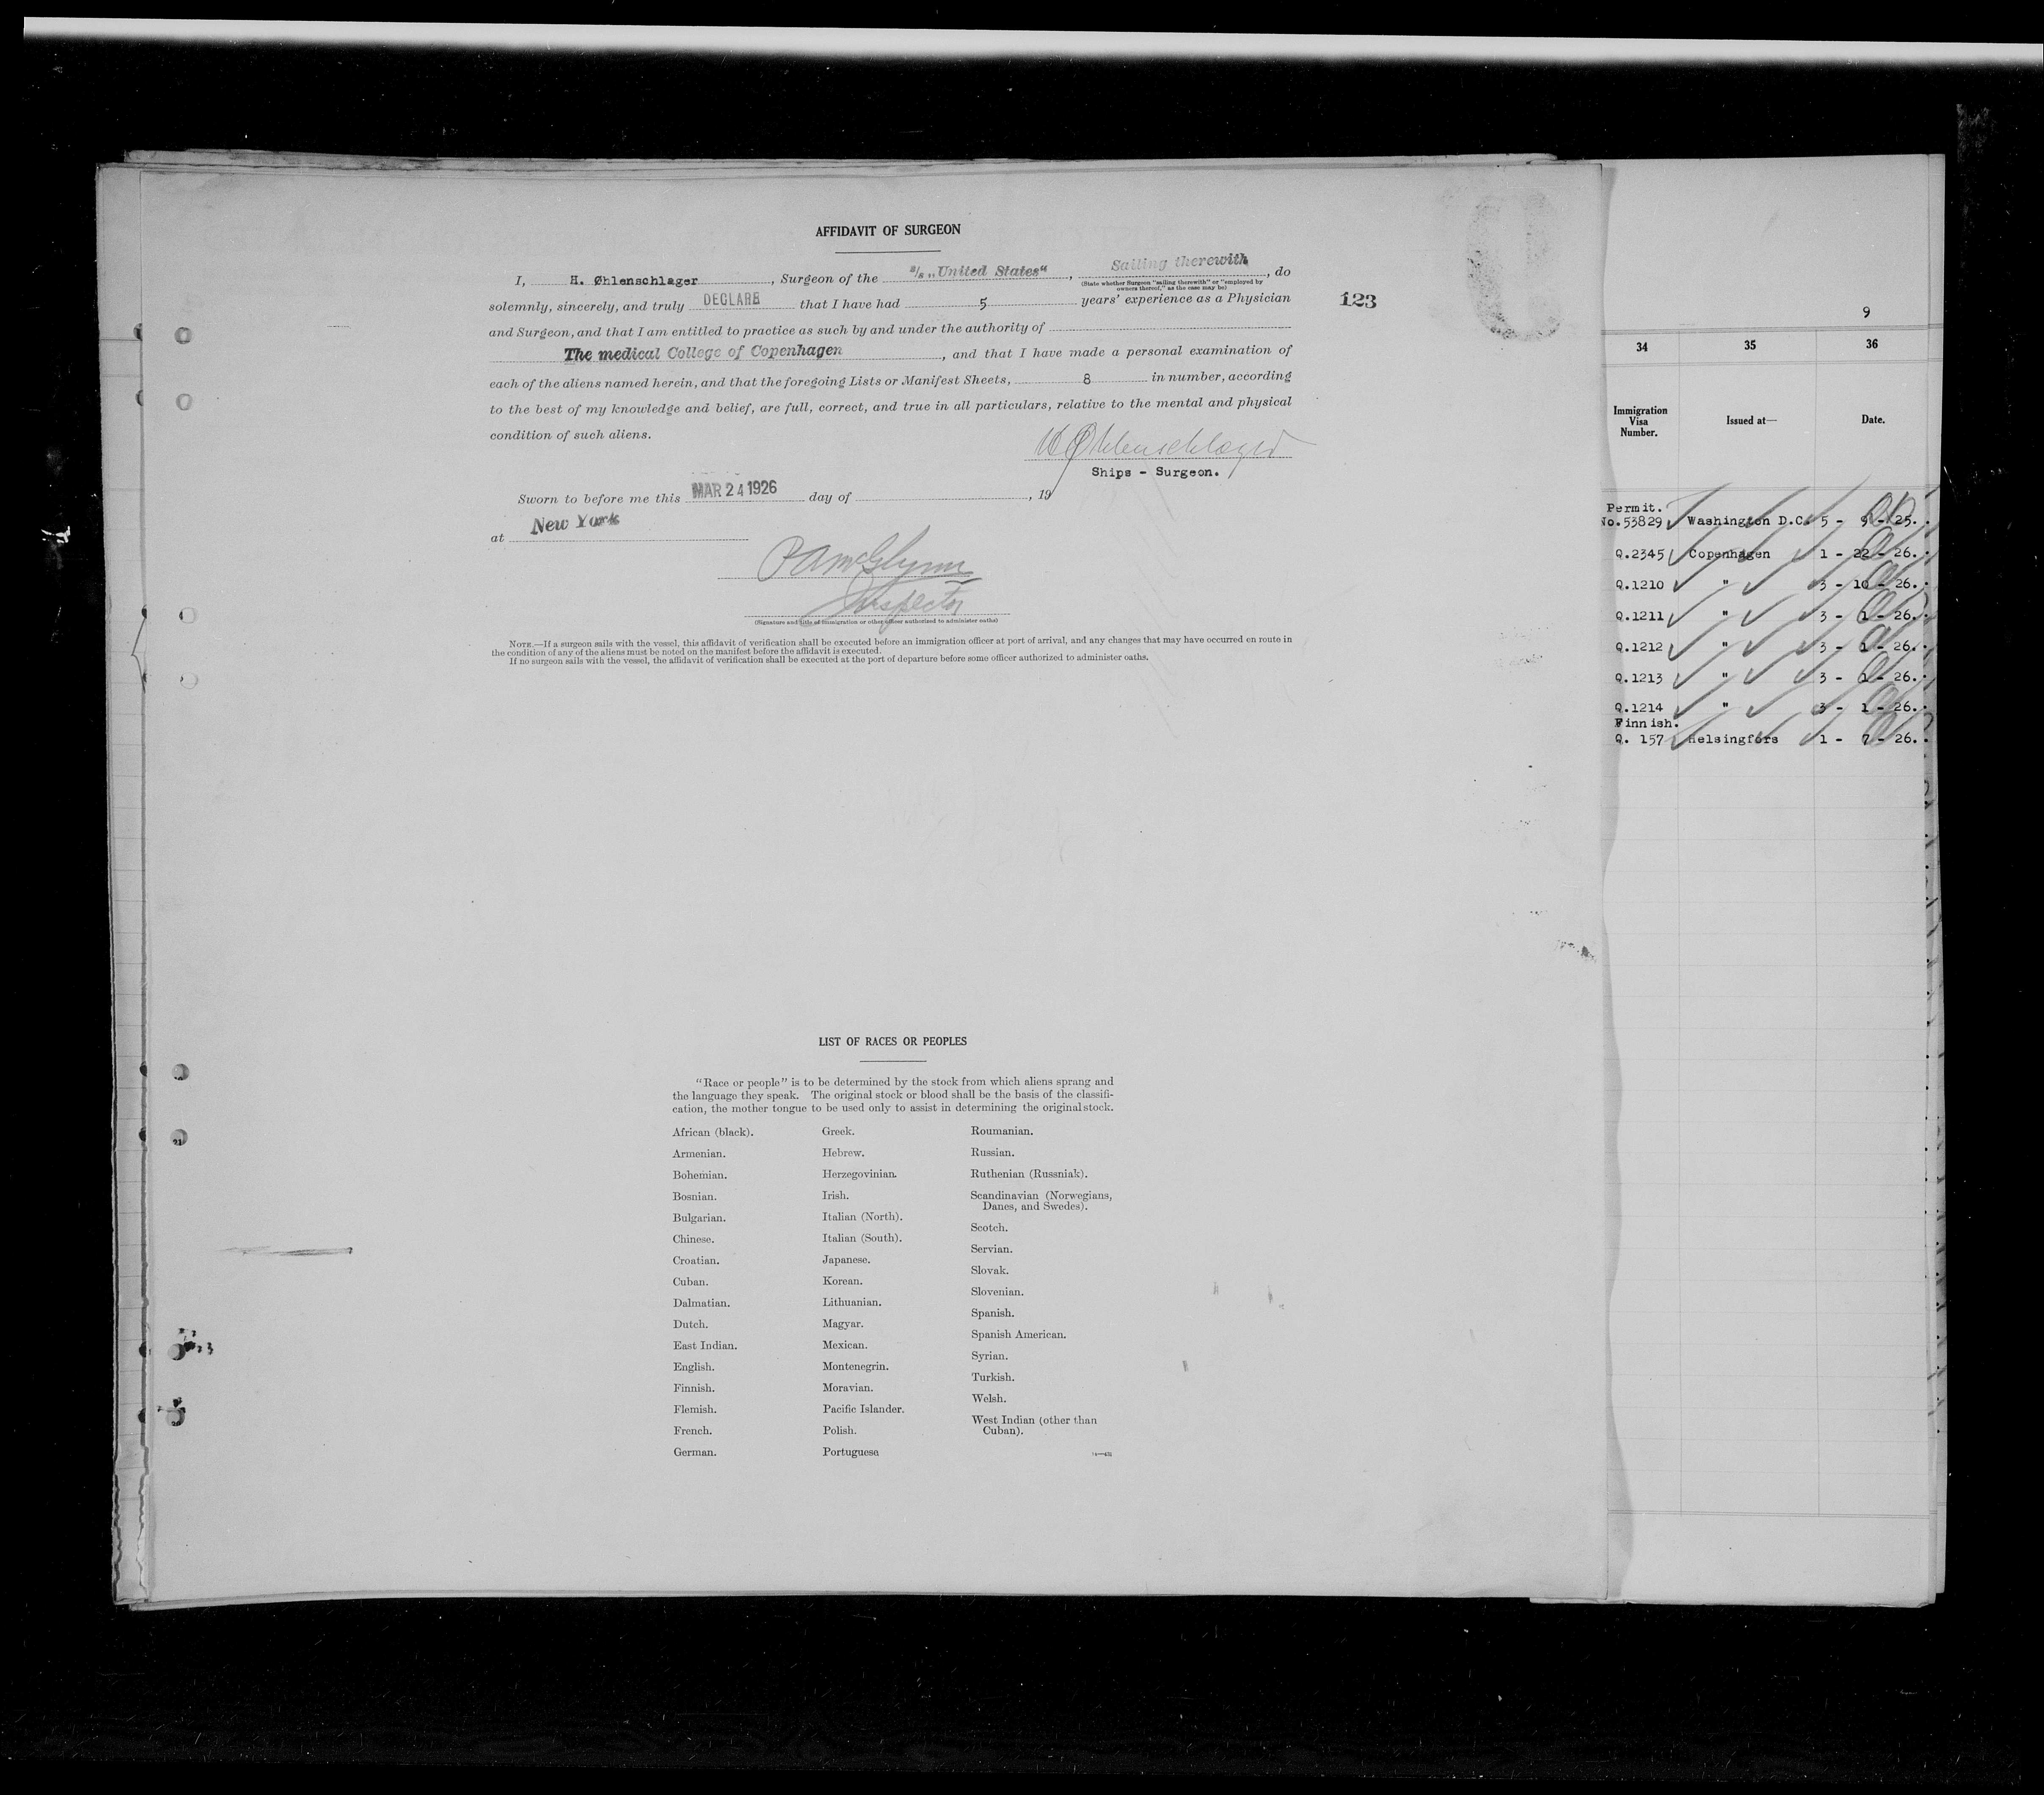 AFFIDAVIT OF SURGEON
I, H. Øhlenschlager, Surgeon of the s/s „United States“, Sailing therewith, do
(State whether Surgeon "sailing therewith" or "employed by
owners thereof," as the case may be)
solemnly, sincerely, and truly DECLARE that I have had 5 years' experience as a Physician
and Surgeon, and that I am entitled to practice as such by and under the authority of
The medical College of Copenhagen, and that I have made a personal examination of
each of the aliens named herein, and that the foregoing Lists or Manifest Sheets, 8 in number, according
to the best of my knowledge and belief, are full, correct, and true in all particulars, relative to the mental and physical
condition of such aliens.
H Øhlenschlager
Ships - Surgeon.
Sworn to before me this MAR 24 1926 day of , 19
at New York
P A McGlynn
Inspector
(Signature and title of immigration or other officer authorized to administer oaths)
NOTE.—If a surgeon sails with the vessel, this affidavit of verification shall be executed before an immigration officer at port of arrival, and any changes that may have occurred en route in
the condition of any of the aliens must be noted on the manifest before the affidavit is executed.
If no surgeon sails with the vessel, the affidavit of verification shall be executed at the port of departure before some officer authorized to administer oaths.
123
LIST OF RACES OR PEOPLES
"Race or people" is to be determined by the stock from which aliens sprang and
the language they speak. The original stock or blood shall be the basis of the classifi-
cation, the mother tongue to be used only to assist in determining the original stock.
African (black).
Armenian.
Bohemian.
Bosnian.
Bulgarian.
Chinese.
Croatian.
Cuban.
Dalmatian.
Dutch.
East Indian.
English.
Finnish.
Flemish.
French.
German.
Greek.
Hebrew.
Herzegovinian.
Irish.
Italian (North).
Italian (South).
Japanese.
Korean.
Lithuanian.
Magyar.
Mexican.
Montenegrin.
Moravian.
Pacific Islander.
Polish.
Portuguese
Roumanian.
Russian.
Ruthenian (Russniak).
Scandinavian (Norwegians,
Danes, and Swedes).
Scotch.
Servian.
Slovak.
Slovenian.
Spanish.
Spanish American.
Syrian.
Turkish.
Welsh.
West Indian (other than
Cuban).
9
34 35 36
Immigration
Visa
Number.
Issued at—
Date.
Permit.
No.53829 Washington D.C. 5 - 9 - 25.
Q.2345 Copenhagen 1 - 22 - 26.
Q.1210 " 3 - 10 - 26.
Q.1211 " 3 - 1 - 26.
Q.1212 " 3 - 1 - 26.
Q.1213 " 3 - 1 - 26.
Q.1214 " 3 - 1 - 26.
Finnish.
Q. 157 Helsingfors 1 - 7 - 26.